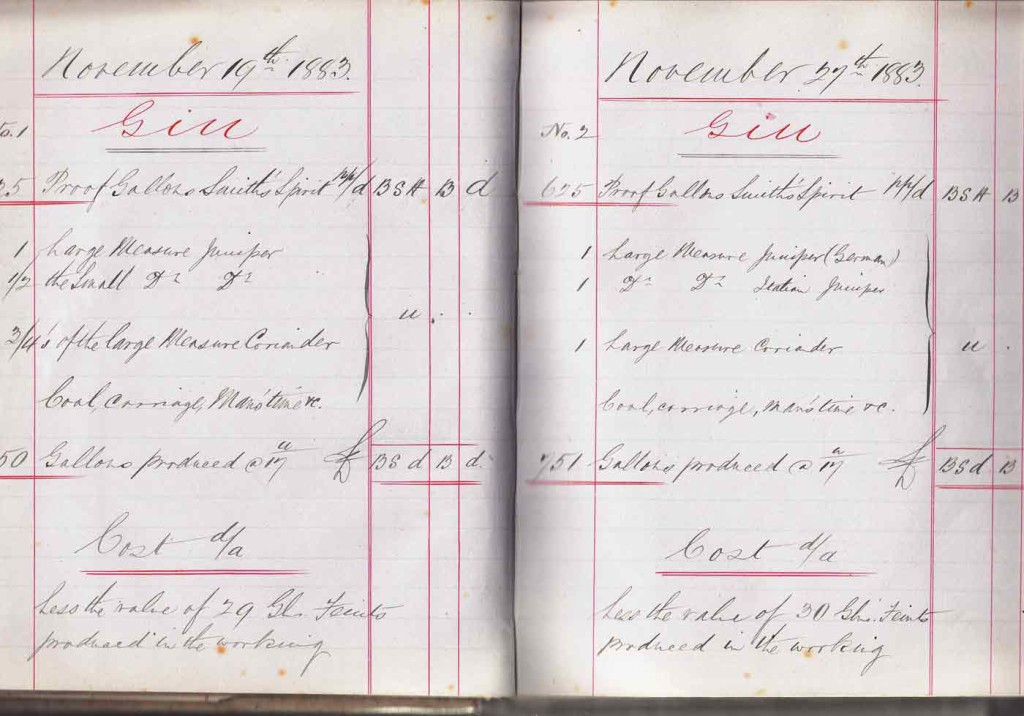 November 19th 1883.
No. 1 Gin
25 Proof Gallons Smith's Spirit /d BSH B d
1 Large Measure Juniper
1/2 the Small Do Do
u .
3/4's of the large Measure Coriander
Coal, carriage, Man's time &c.
50 Gallons produced @ £ BS d B d
Cost d/a
Less the value of 29 Gls. Feints
produced in the working
November 27th 1883.
No. 2 Gin
625 Proof Gallons Smith's Spirit /d BSH B
1 Large Measure Juniper (German)
1 Do Do Italian Juniper
1 Large Measure Coriander u .
Coal, carriage, man's time &c.
751 Gallons produced @ £ BSd B
Cost d/a
Less the value of 30 Gls. Feints
produced in the working